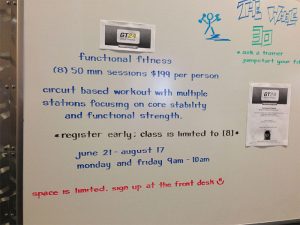 GT24
functional fitness
(8) 50 min sessions $199 per person
circuit based workout with multiple
stations focusing on core stability
and functional strength.
*register early; class is limited to [8]*
june 21 - august 17
monday and friday 9am - 10am
space is limited. sign up at the front desk
30
*ask a trainer
jumpstart your
GT24